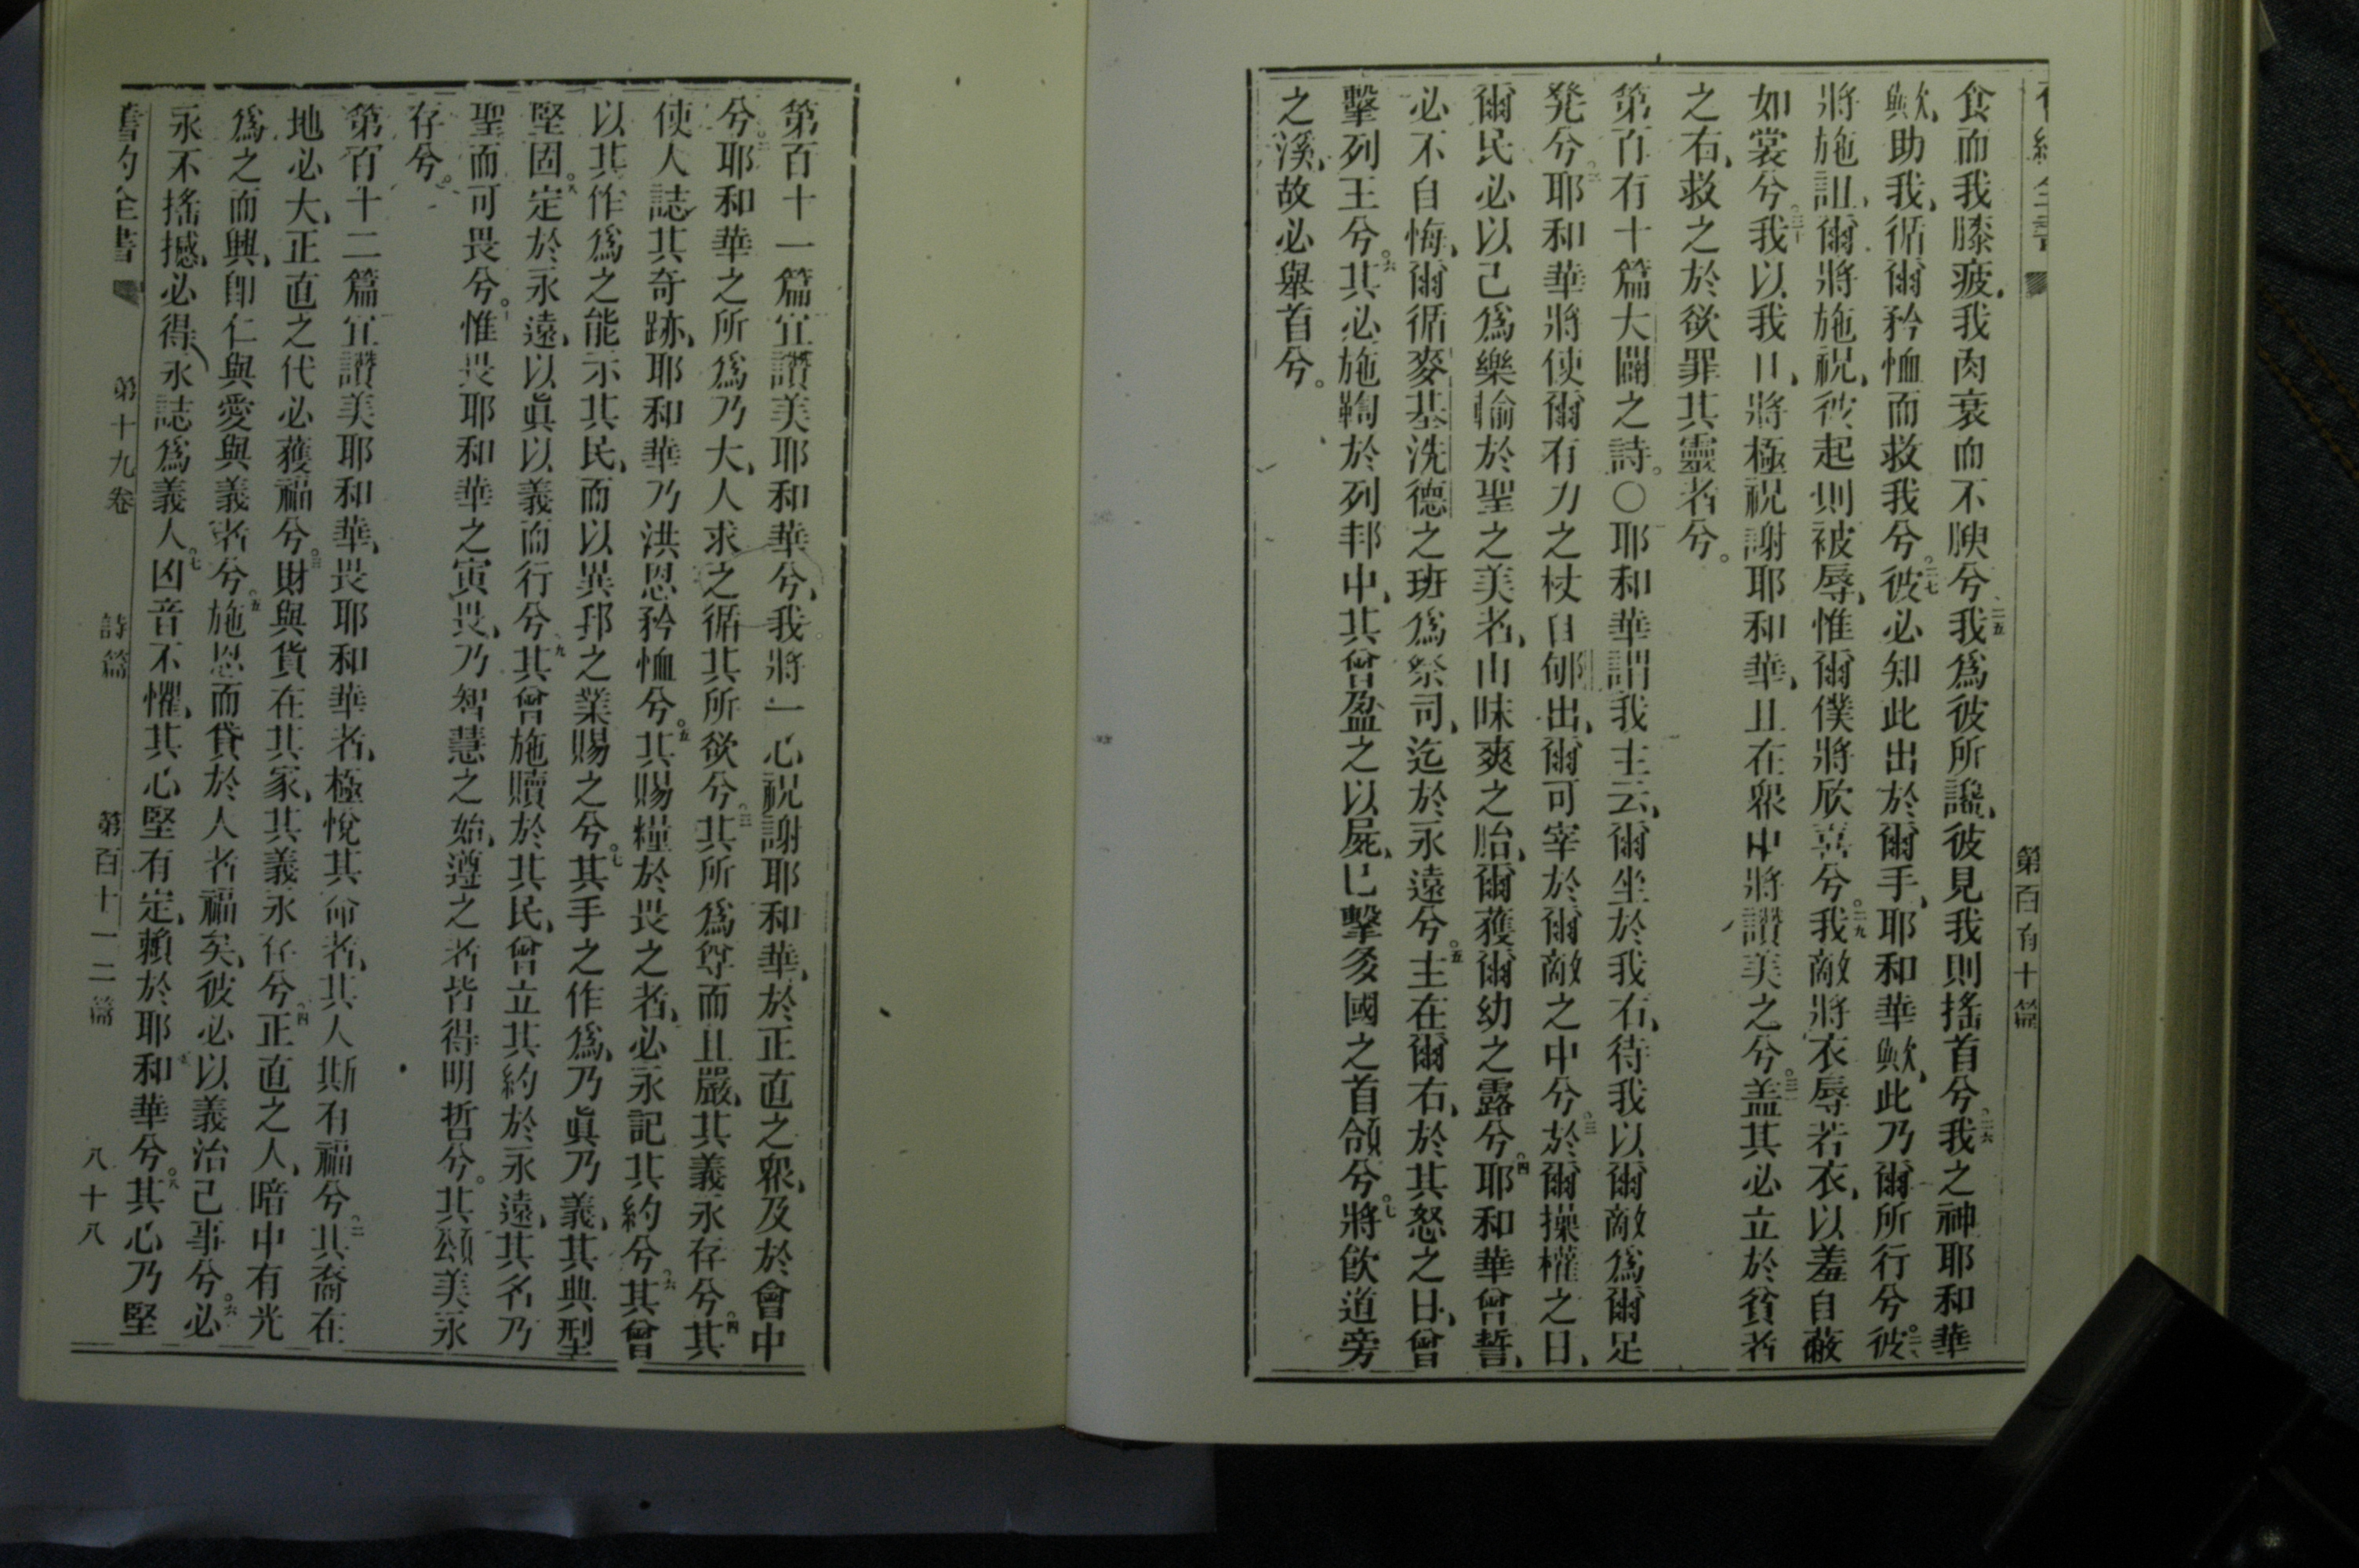 第百有十篇
食而我膝疲、我肉衰而不腴兮。二五我爲彼所謚、彼見我則搖首兮。二六我之神耶和華
歟、助我、循爾矜恤而救我兮。二七彼必知此出於爾手、耶和華歟、此乃爾所行兮。二八彼
將施詛、爾將施祝、彼起則被辱、惟爾僕將欣喜兮。二九我敵將衣辱若衣、以羞自蔽
如裳兮。三十我以我口、將極祝謝耶和華、且在眾中將讚美之兮。三一盖其必立於貧者
之右、救之於欲罪其靈者兮。
第百有十篇大闢之詩。○耶和華謂我主云、爾坐於我右、待我以爾敵爲爾足
発兮。二耶和華將使爾有力之杖自郇出、爾可宰於爾敵之中兮。三於爾操權之日、
爾民必以己爲樂輸於聖之美名、由昧爽之胎、爾獲爾幼之露兮。四耶和華曾誓、
必不自悔、爾循麥基洗德之班爲祭司、迄於永遠兮。五主在爾右、於其怒之日、曾
擊列王兮。六其必施鞫於列邦中、其曾盈之以屍、已擊多國之首領兮。七將飲道旁
之溪、故必舉首兮。
第百十一篇宜讚美耶和華兮、我將一心祝謝耶和華、於正直之眾、及於會中
兮。二耶和華之所爲乃大、人求之循其所欲兮。三其所爲尊而且嚴、其義永存兮。四其
使人誌其奇跡、耶和華乃洪恩矜恤兮。五其賜糧於畏之者、必永記其約兮。六其曾
以其作爲之能示其民、而以異邦之業賜之兮。七其手之作爲、乃眞乃義、其典型
堅固。八定於永遠、以眞以義而行兮。九其曾施贖於其民、曾立其約於永遠、其名乃
聖而可畏兮。十惟畏耶和華之寅畏、乃智慧之始、遵之者皆得明哲兮。其頌美永
存兮。
第百十二篇宜讚美耶和華、畏耶和華者、極悅其命者、其人斯有福兮。二其裔在
地必大、正直之代必獲福兮。三財與貨在其家、其義永存兮。四正直之人、暗中有光
爲之而興、卽仁與愛與義者兮。五施恩而貸於人者福矣、彼必以義治己事兮。六必
永不搖撼、必得永誌爲義人。七凶音不懼、其心堅有定、賴於耶和華兮。八其心乃堅
舊約全書 第十九卷 詩篇 第百十一二篇 八十八